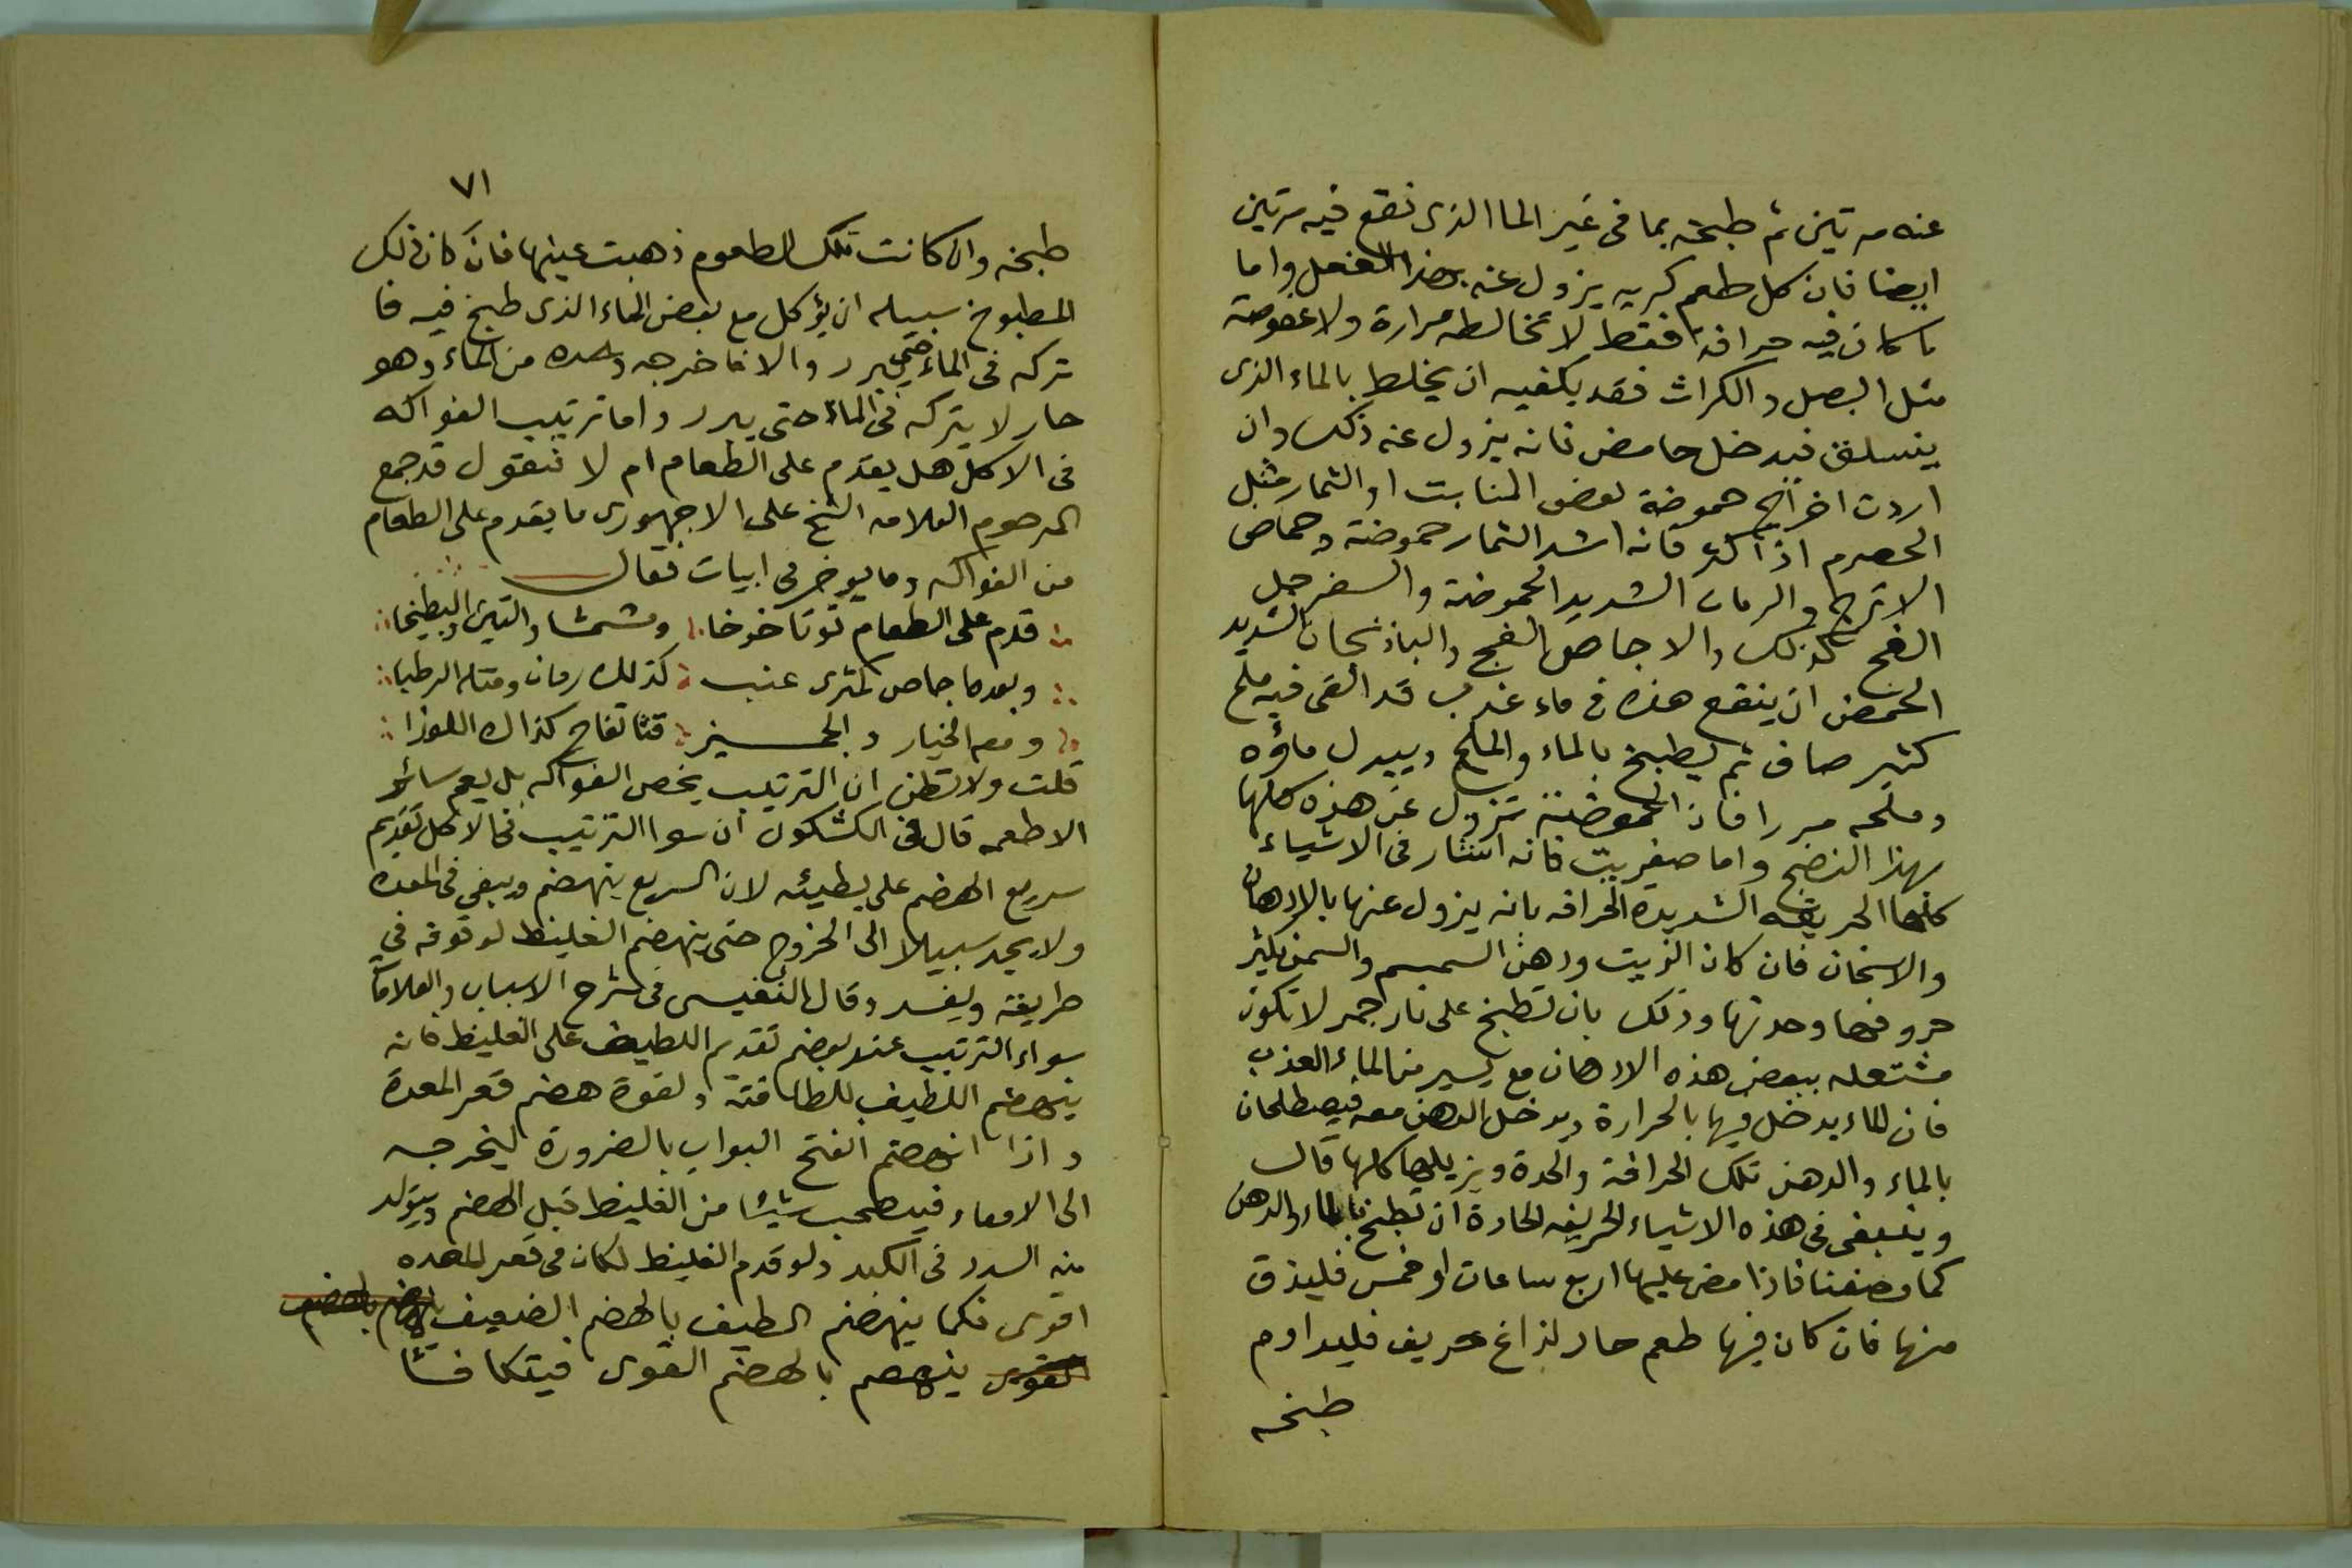 عنه مرتين ثم طبخه بما فى غير الما الذى نقع فيه مرتين
ايضا فان كل طعم كريه يزول عنه بهذا الفعل واما
ما كان فيه حرافة فقط لا تخالطه مرارة ولا عفوصة
مثل البصل والكراث فقد يكفيه ان يخلط بالماء الذى
ينسلق فيه خل حامض فانه يزول عنه ذلك وان
اردت اخراج حموضة بعض المنابت او الثمار مثل
الحصرم اذا اكل فانه اشد الثمار حموضة وحماض
الاترج والرمان الشديد الحموضة والسفرجل
الفج كذلك والاجاص الفج والباذنجان الشديد
الحمض ان ينقع هذه فى ماء عذب قد القى فيه ملح
كثير صاف ثم يطبخ بالماء والملح ويبدل ماؤه
وملحه مررا فان الحموضة تزول عن هذه كلها
بهذا النضج واما صغريت فانه استثار فى الاشياء
كلها الحريفه الشديدة الحرافه بانه يزول عنها بالادهان
والاسخان فان كان الزيت ودهن السمسم والسمن يكثر
حروفها وحدتها وذلك بان تطبخ على نار جمر لا تكون
مشتعله ببعض هذه الادهان مع يسير من الماء العذب
فان الماء يدخل فيها بالحرارة ويدخل الدهن معه فيصطلحان
بالماء والدهن تلك الحرافة والحدة ويزيلها كلها قال
وينبغى فى هذه الاشياء الحريفه الحادة ان تطبخ بالماء والدهن
كما وصفنا فاذا مضى عليها اربع ساعات او خمس فليذق
منها فان كان فيها طعم حاد لذاغ حريف فليداوم
طبخه
٧١
طبخه والا كانت تلك الطعوم ذهبت عينها فان كان ذلك
المطبوخ سبيله ان يؤكل مع بعض الماء الذى طبخ فيه فا
تركه فى الماء حتى يبرد والا فاخرجه وحده من الماء وهو
حار لا يتركه فى الماء حتى يبرد واما ترتيب الفواكه
فى الاكل هل يقدم على الطعام ام لا فنقول قد جمع
المرحوم العلامه الشيخ على الاجهورى ما يقدم على الطعام
من الفواكه وما يوخر فى ابيات فقال
قدم على الطعام توتا خوخا ومشمشا والتين والبطيخا
وبعدها جاص كمثرى عنب كذلك رمان ومثله الرطبا
ومعه الخيار والجميز قثا تفاح كذاك اللوزا
قلت ولا تظن ان الترتيب يخص الفواكه بل يعم سائر
الاطعمه قال فى الكشكول ان سوا الترتيب فى الاكل تقديم
سريع الهضم على بطيئه لان السريع ينهضم ويبقى فى المعده
ولا يجد سبيلا الى الخروج حتى ينهضم الغليظ لوقوفه في
طريقه ويفسد وقال النفيسى فى شرح الاسباب والعلامات
سواء الترتيب عند بعضهم تقديم اللطيف على الغليظ فانه
ينهضم اللطيف للطافته ولقوة هضم قعر المعدة
واذا انهضم انفتح البواب بالضرورة ليخرجه
الى الامعاء فيصحب شيئا من الغليظ قبل الهضم ويتولد
منه السدد فى الكبد ولو قدم الغليظ لكان فى قعر المعده
اقوى فكما ينهضم الطيف بالهضم الضعيف بالهضم
القوى ينهضم بالهضم القوى فيتكافئا